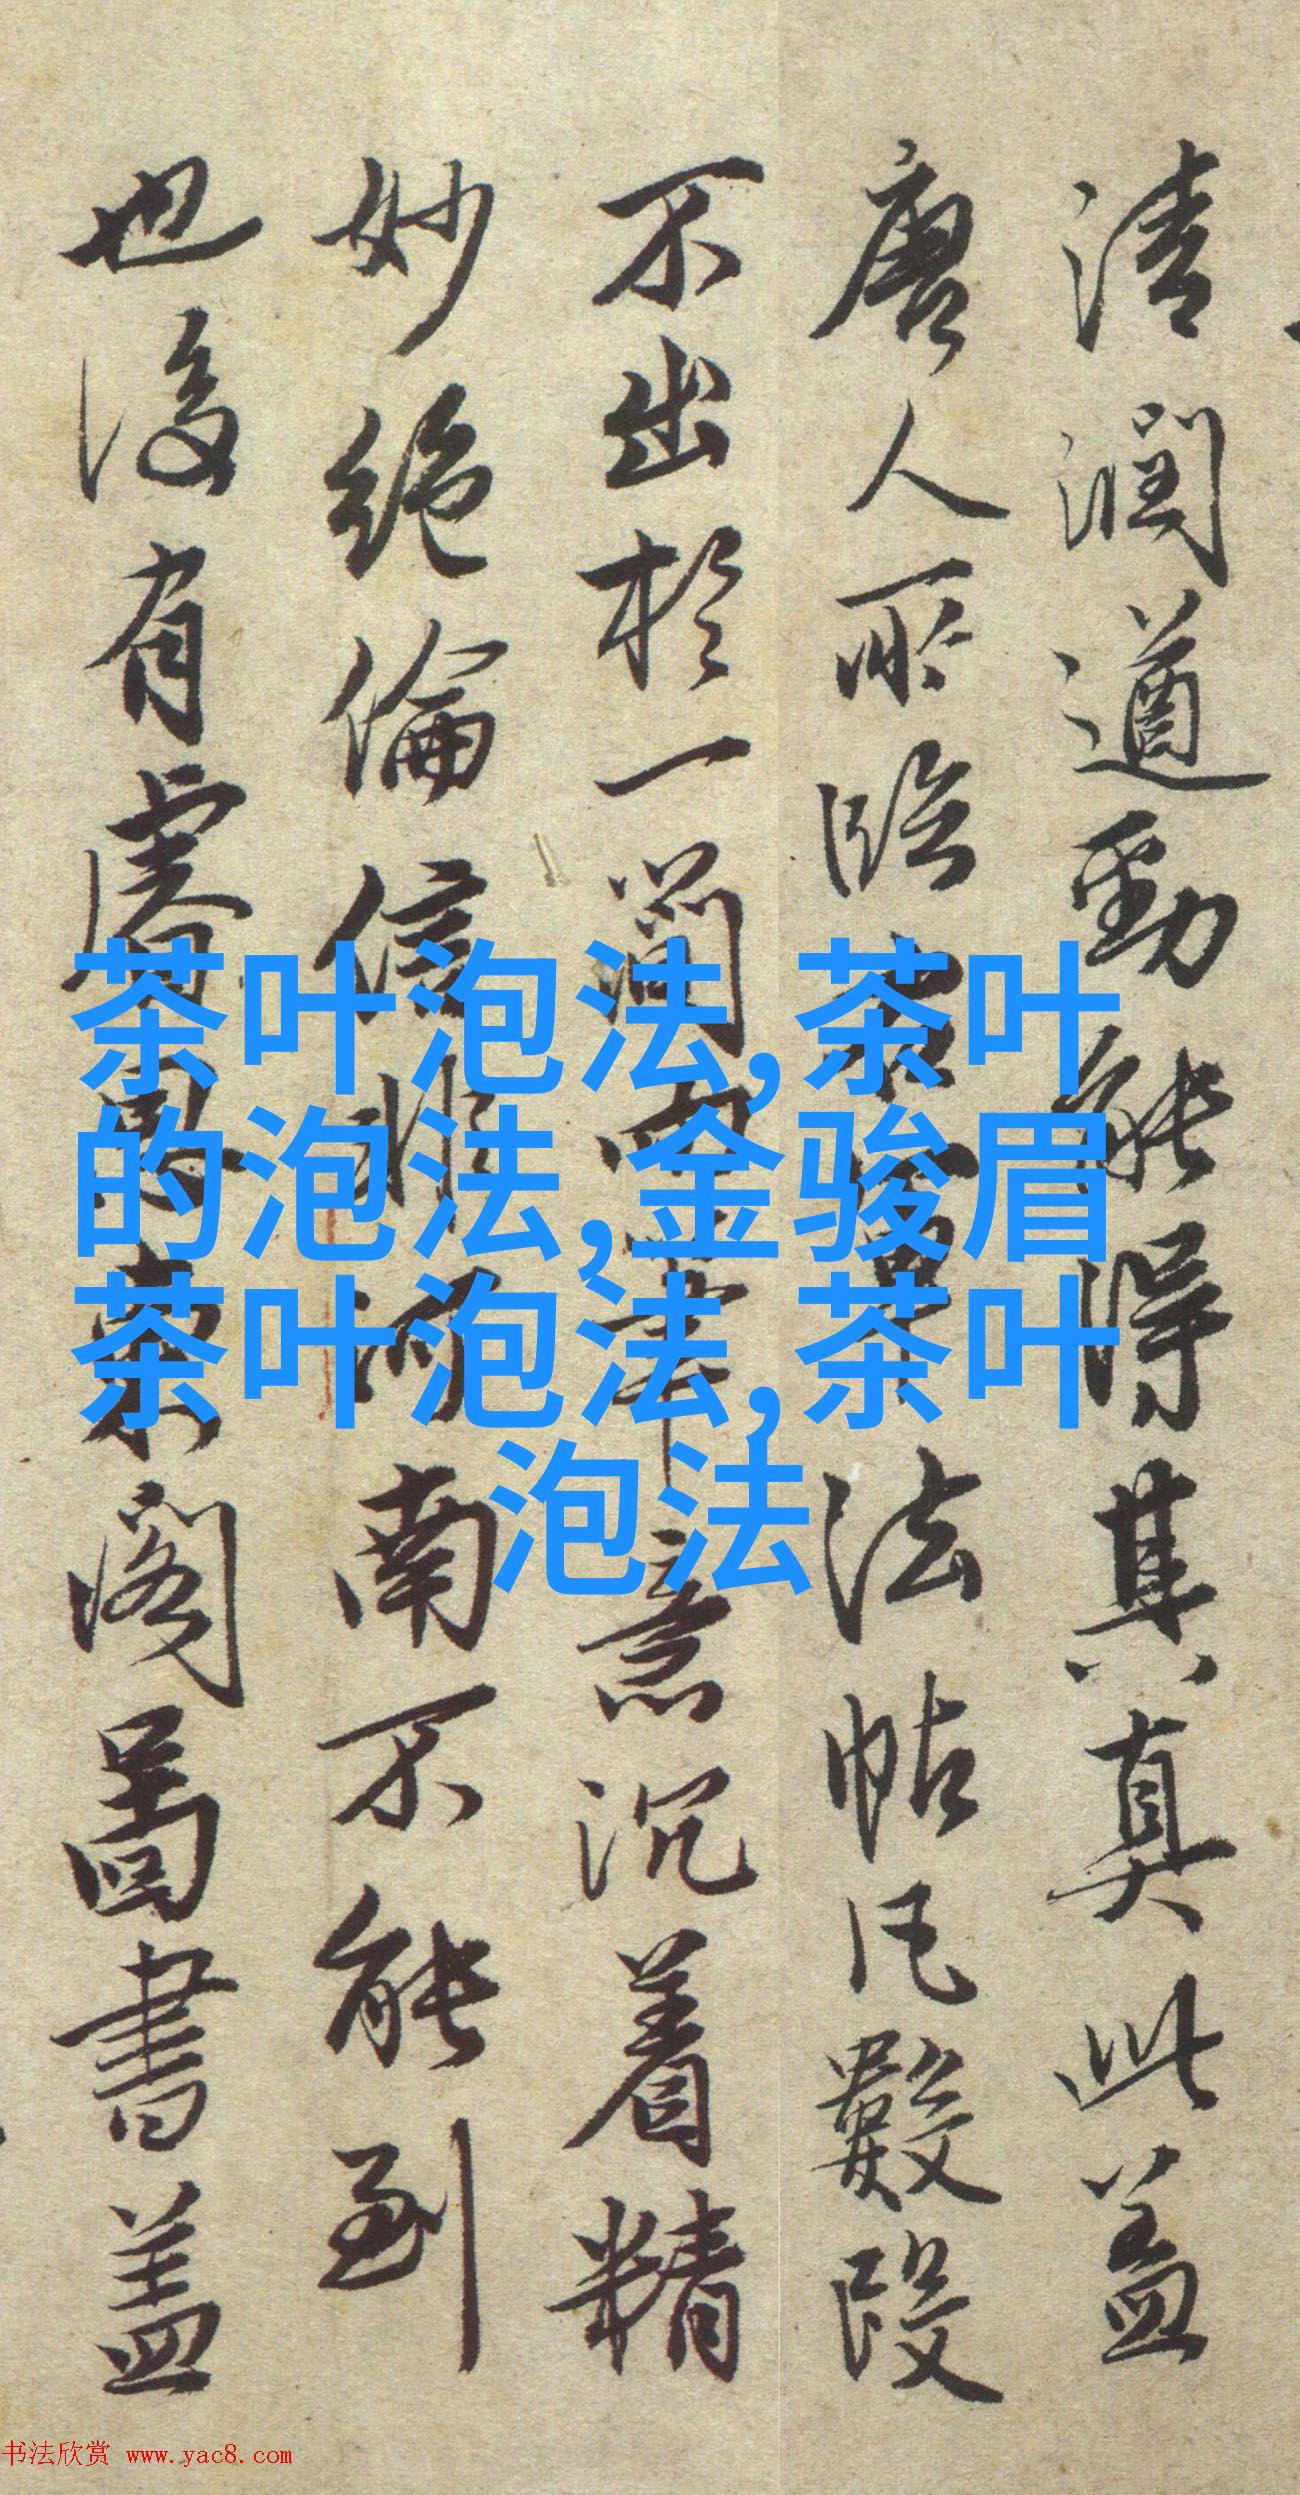 清潤遒勁能得其真此盖
唐人所臨右軍法帖凡數段
不出於一而筆意沉着精
妙絕倫信非河南不能到
也後有睿思東閣圖書盖
茶叶泡法,茶叶
的泡法,金骏眉
茶叶泡法,茶叶
泡法
书法欣赏 www.yac8.com